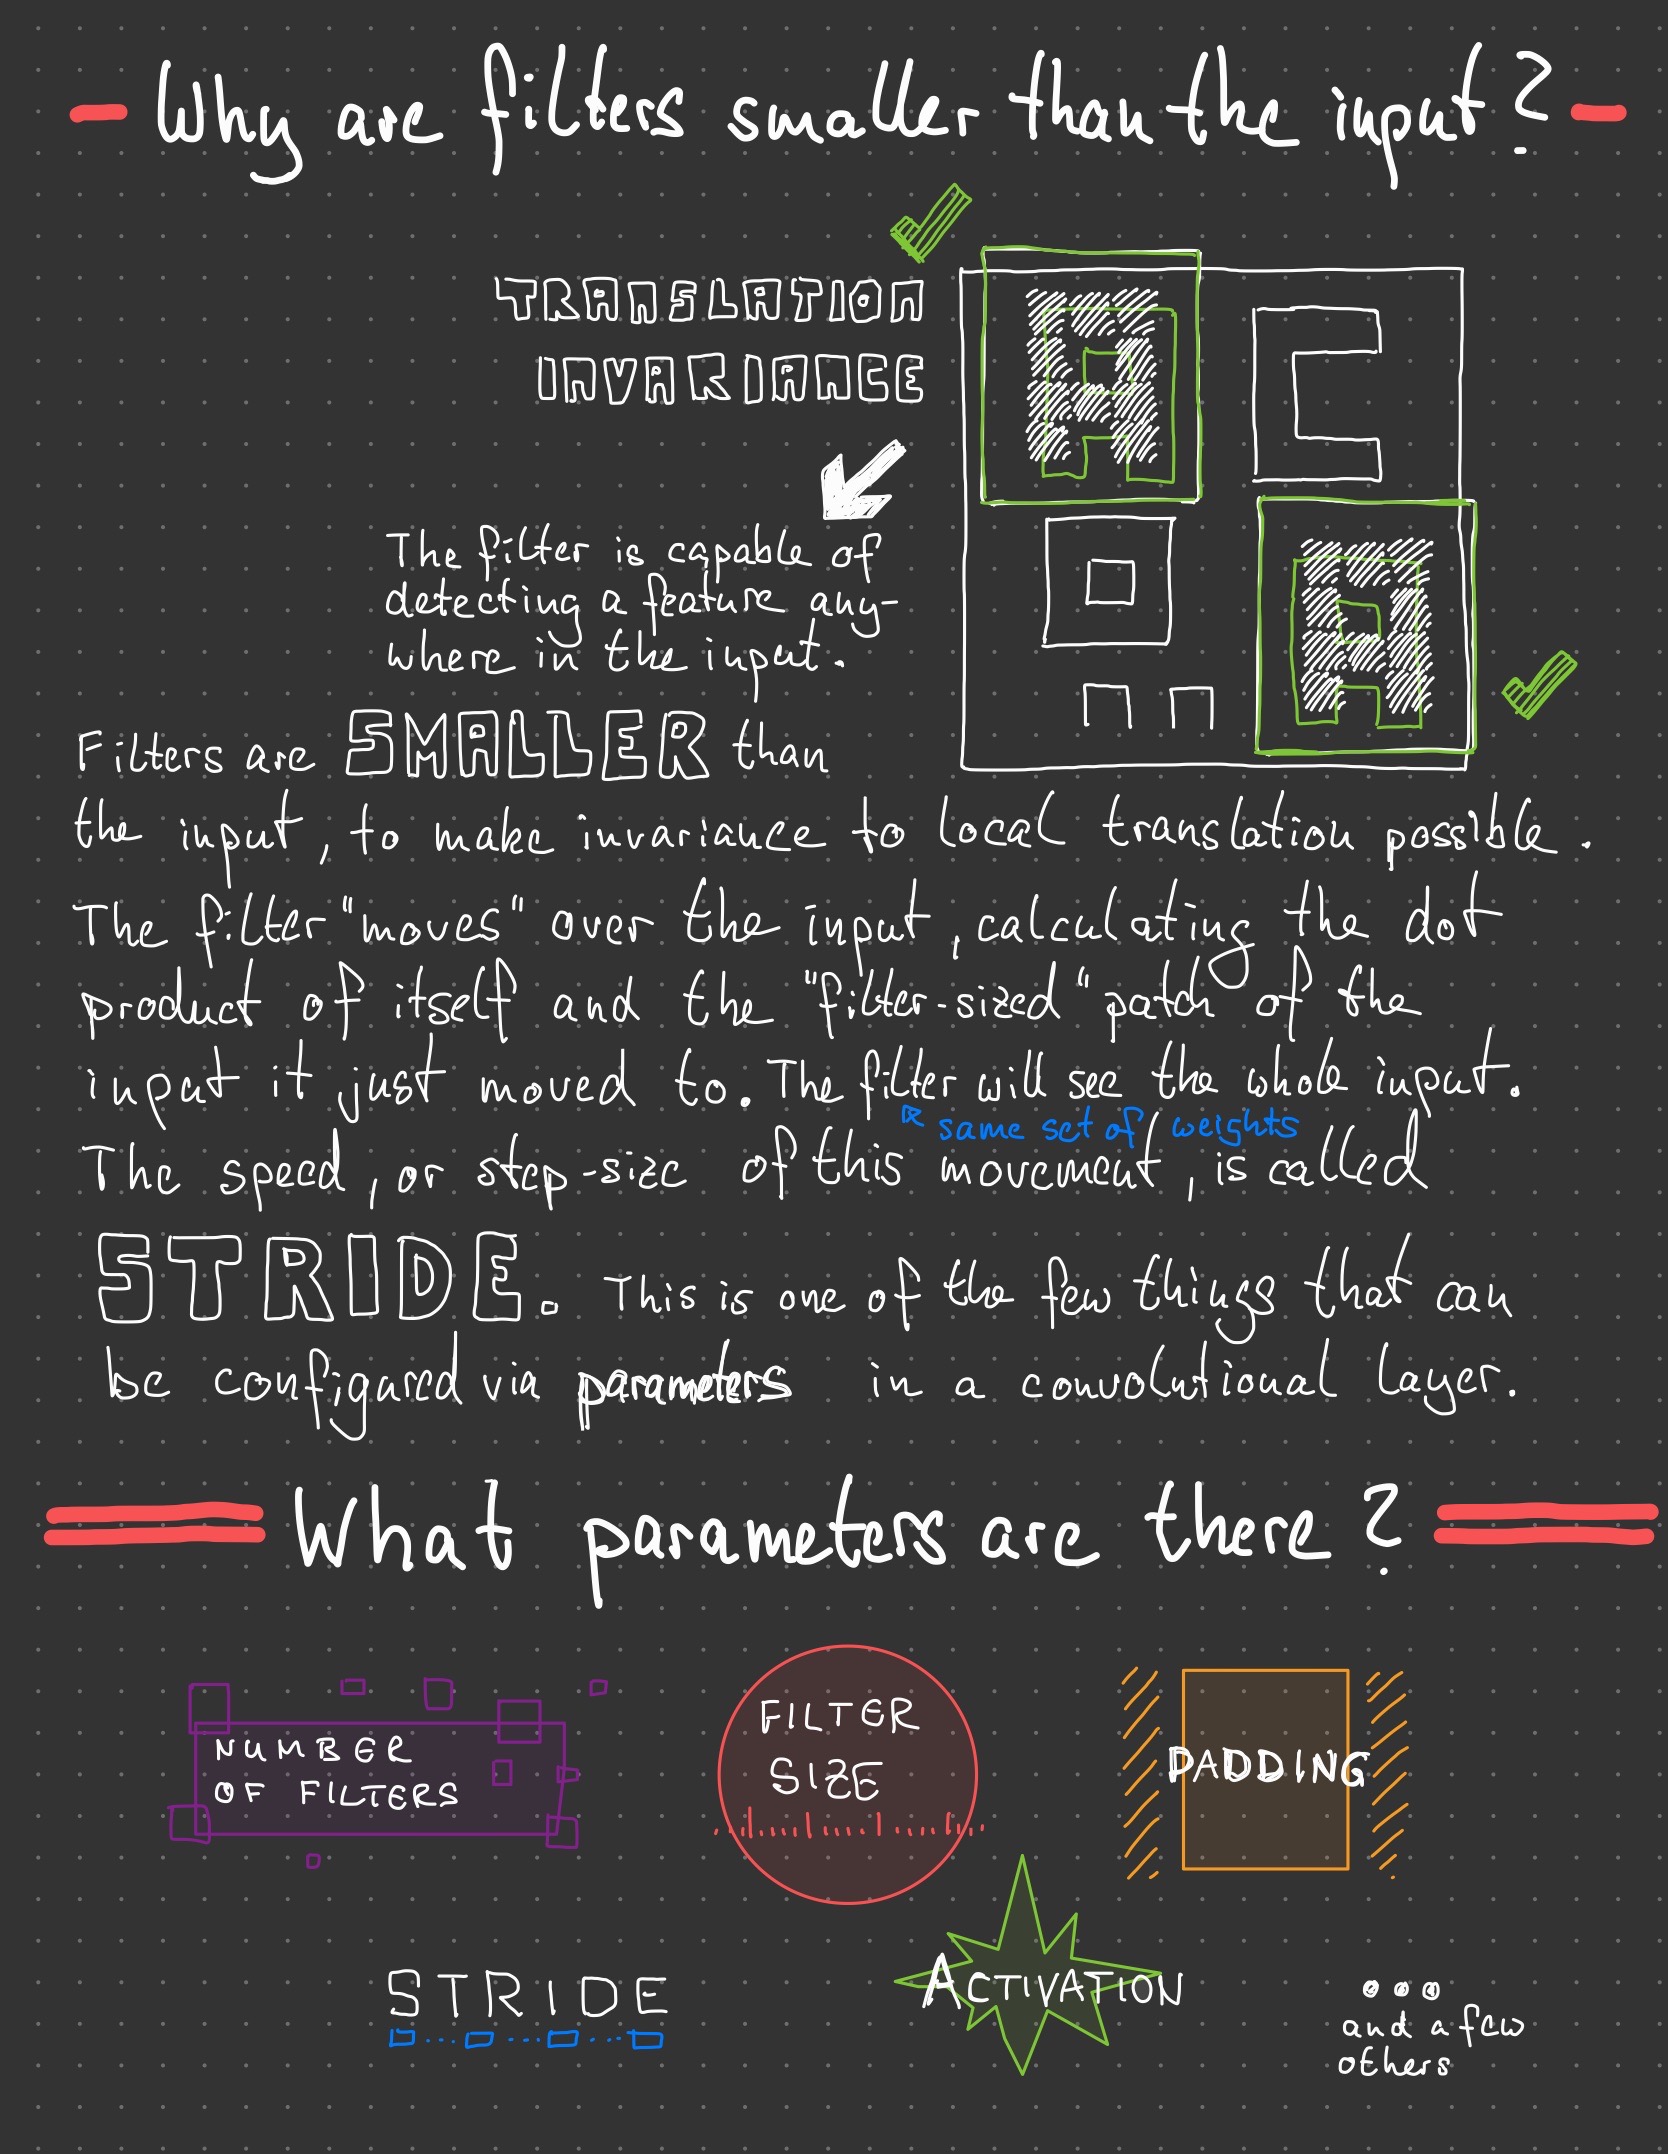 Why are filters smaller than the input?
TRANSLATION
INVARIANCE
The filter is capable of
detecting a feature any-
where in the input.
Filters are SMALLER than
the input, to make invariance to local translation possible.
The filter "moves" over the input, calculating the dot
product of itself and the "filter-sized" patch of the
input it just moved to. The filter will see the whole input.
same set of weights
The speed, or step-size of this movement, is called
STRIDE. This is one of the few things that can
be configured via parameters in a convolutional layer.
What parameters are there?
NUMBER
OF FILTERS
FILTER
SIZE
PADDING
STRIDE
ACTIVATION
...
and a few
others